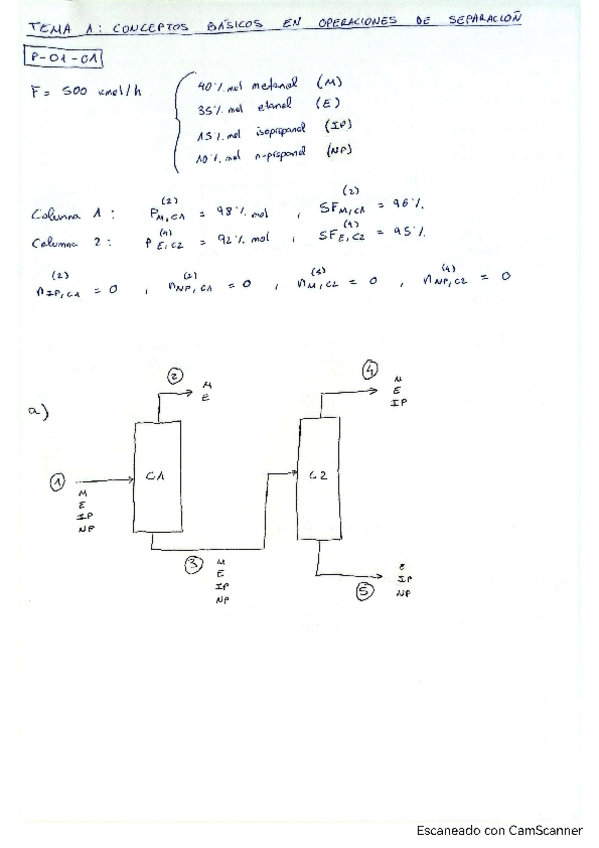 TEMA 1: CONCEPTOS BÁSICOS EN OPERACIONES DE SEPARACIÓN
P-01-01
F = 500 kmol/h
40% mol metanol (M)
35% mol etanol (E)
15% mol isopropanol (IP)
10% mol n-propanol (NP)
Columna 1: P_{M,C1}^{(2)} = 98% mol , SF_{M,C1}^{(2)} = 96%
Columna 2: P_{E,C2}^{(4)} = 92% mol , SF_{E,C2}^{(4)} = 95%
n_{IP,C1}^{(2)} = 0 , n_{NP,C1}^{(2)} = 0 , n_{M,C2}^{(5)} = 0 , n_{NP,C2}^{(4)} = 0
a)
2
M
E
4
M
E
IP
1
M
E
IP
NP
C1
C2
3
M
E
IP
NP
5
E
IP
NP
Escaneado con CamScanner